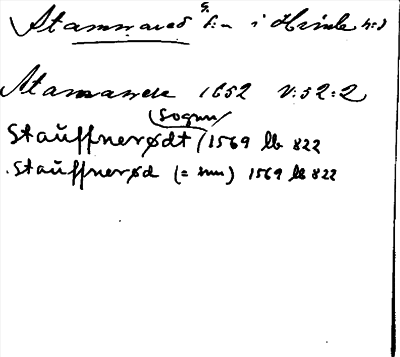 Stamnared S:n i Himle h:d
Stamarerk 1652 v:52:2
(sognn)
Stauffnerødt 1569 lb 822
Stauffnerød (= snn) 1569 lb 822